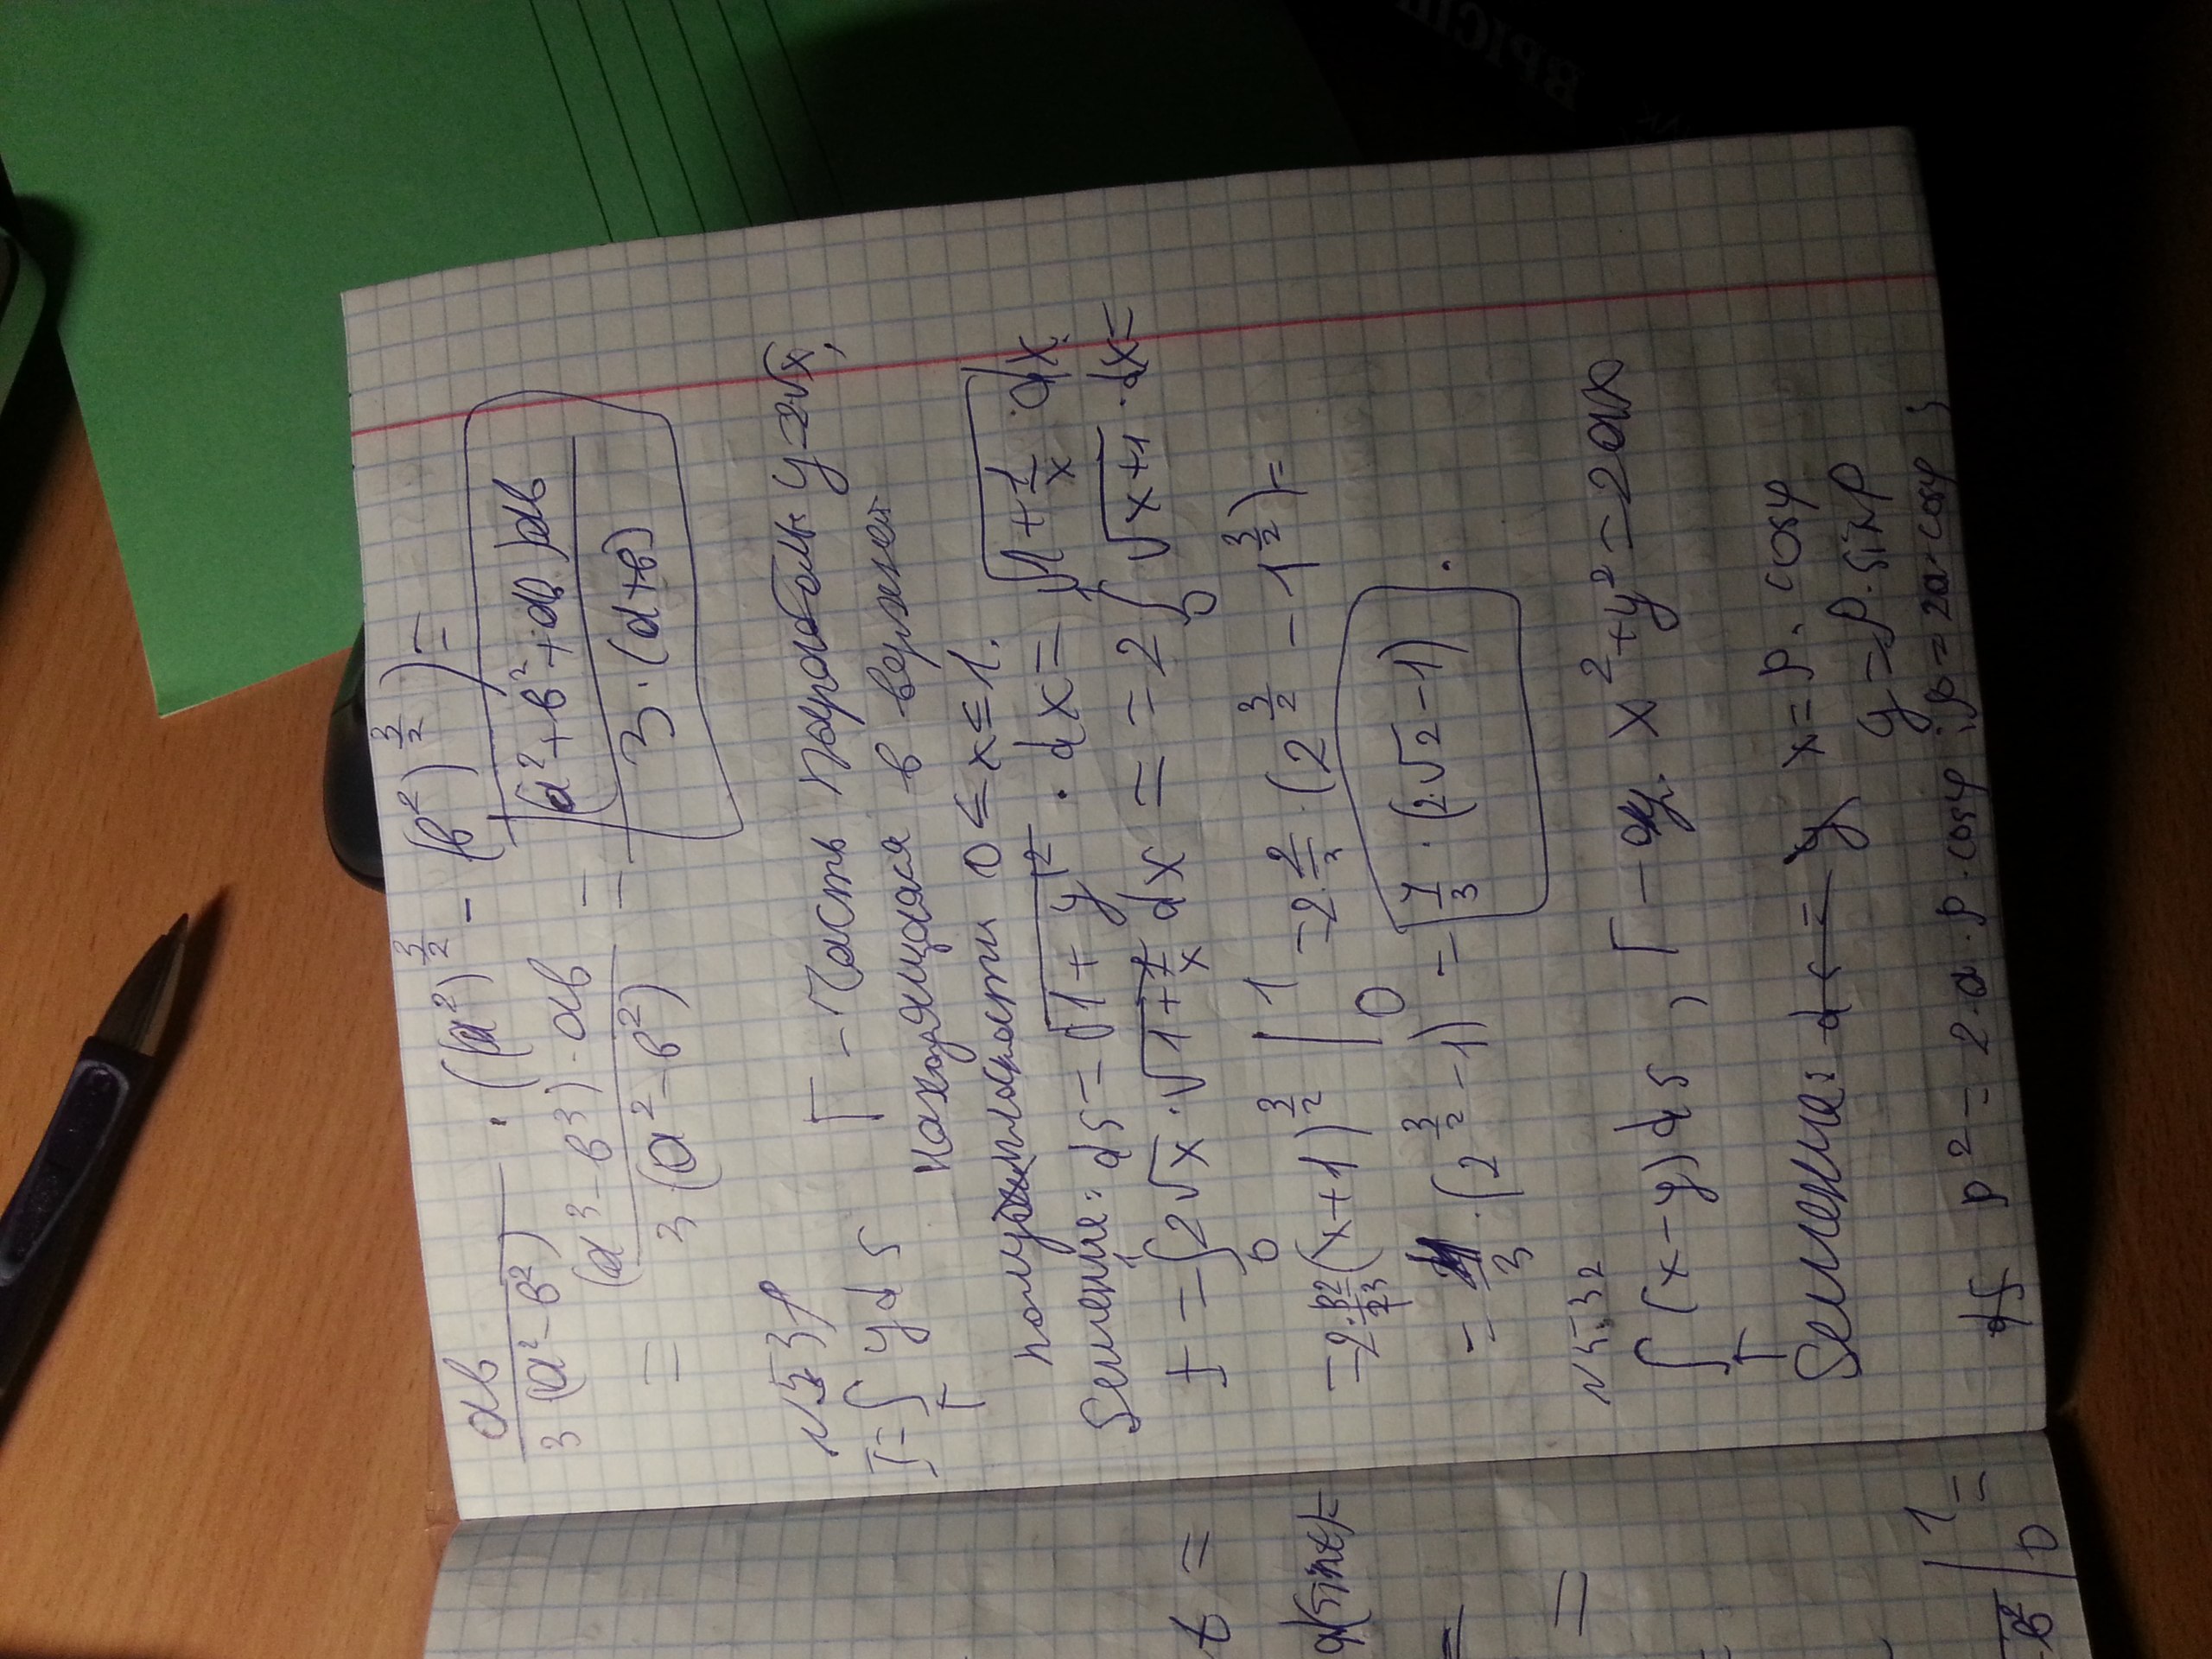 ab / 3(a²-b²) · ((a²)^(3/2) - (b²)^(3/2)) =
= (a³-b³)·ab / 3·(a²-b²) = (a²+b²+ab)ab / 3·(a+b)
N531
I = ∫_Γ yds Γ - часть параболы y=2√x,
находящаяся в верхней
полуплоскости 0≤x≤1.
Решение: ds = √(1+y'²) · dx = √(1+1/x) · dx.
I = ∫_0^1 2√x · √(1+1/x) dx = = 2 ∫_0^1 √(x+1) · dx =
=2·2/3 (x+1)^(3/2) |_0^1 =2·2/3 · (2^(3/2) - 1^(3/2)) =
= 4/3 · (2^(3/2) - 1) = 4/3 · (2·√2 - 1).
N532
∫_Γ (x-y)ds, Γ - окр. x²+y²=2ax
Решение: x=ρ·cosφ
y=ρ·sinφ
ρ² = 2·a·ρ·cosφ; ρ=2a·cosφ;
t =
=
=
|_0^1 =